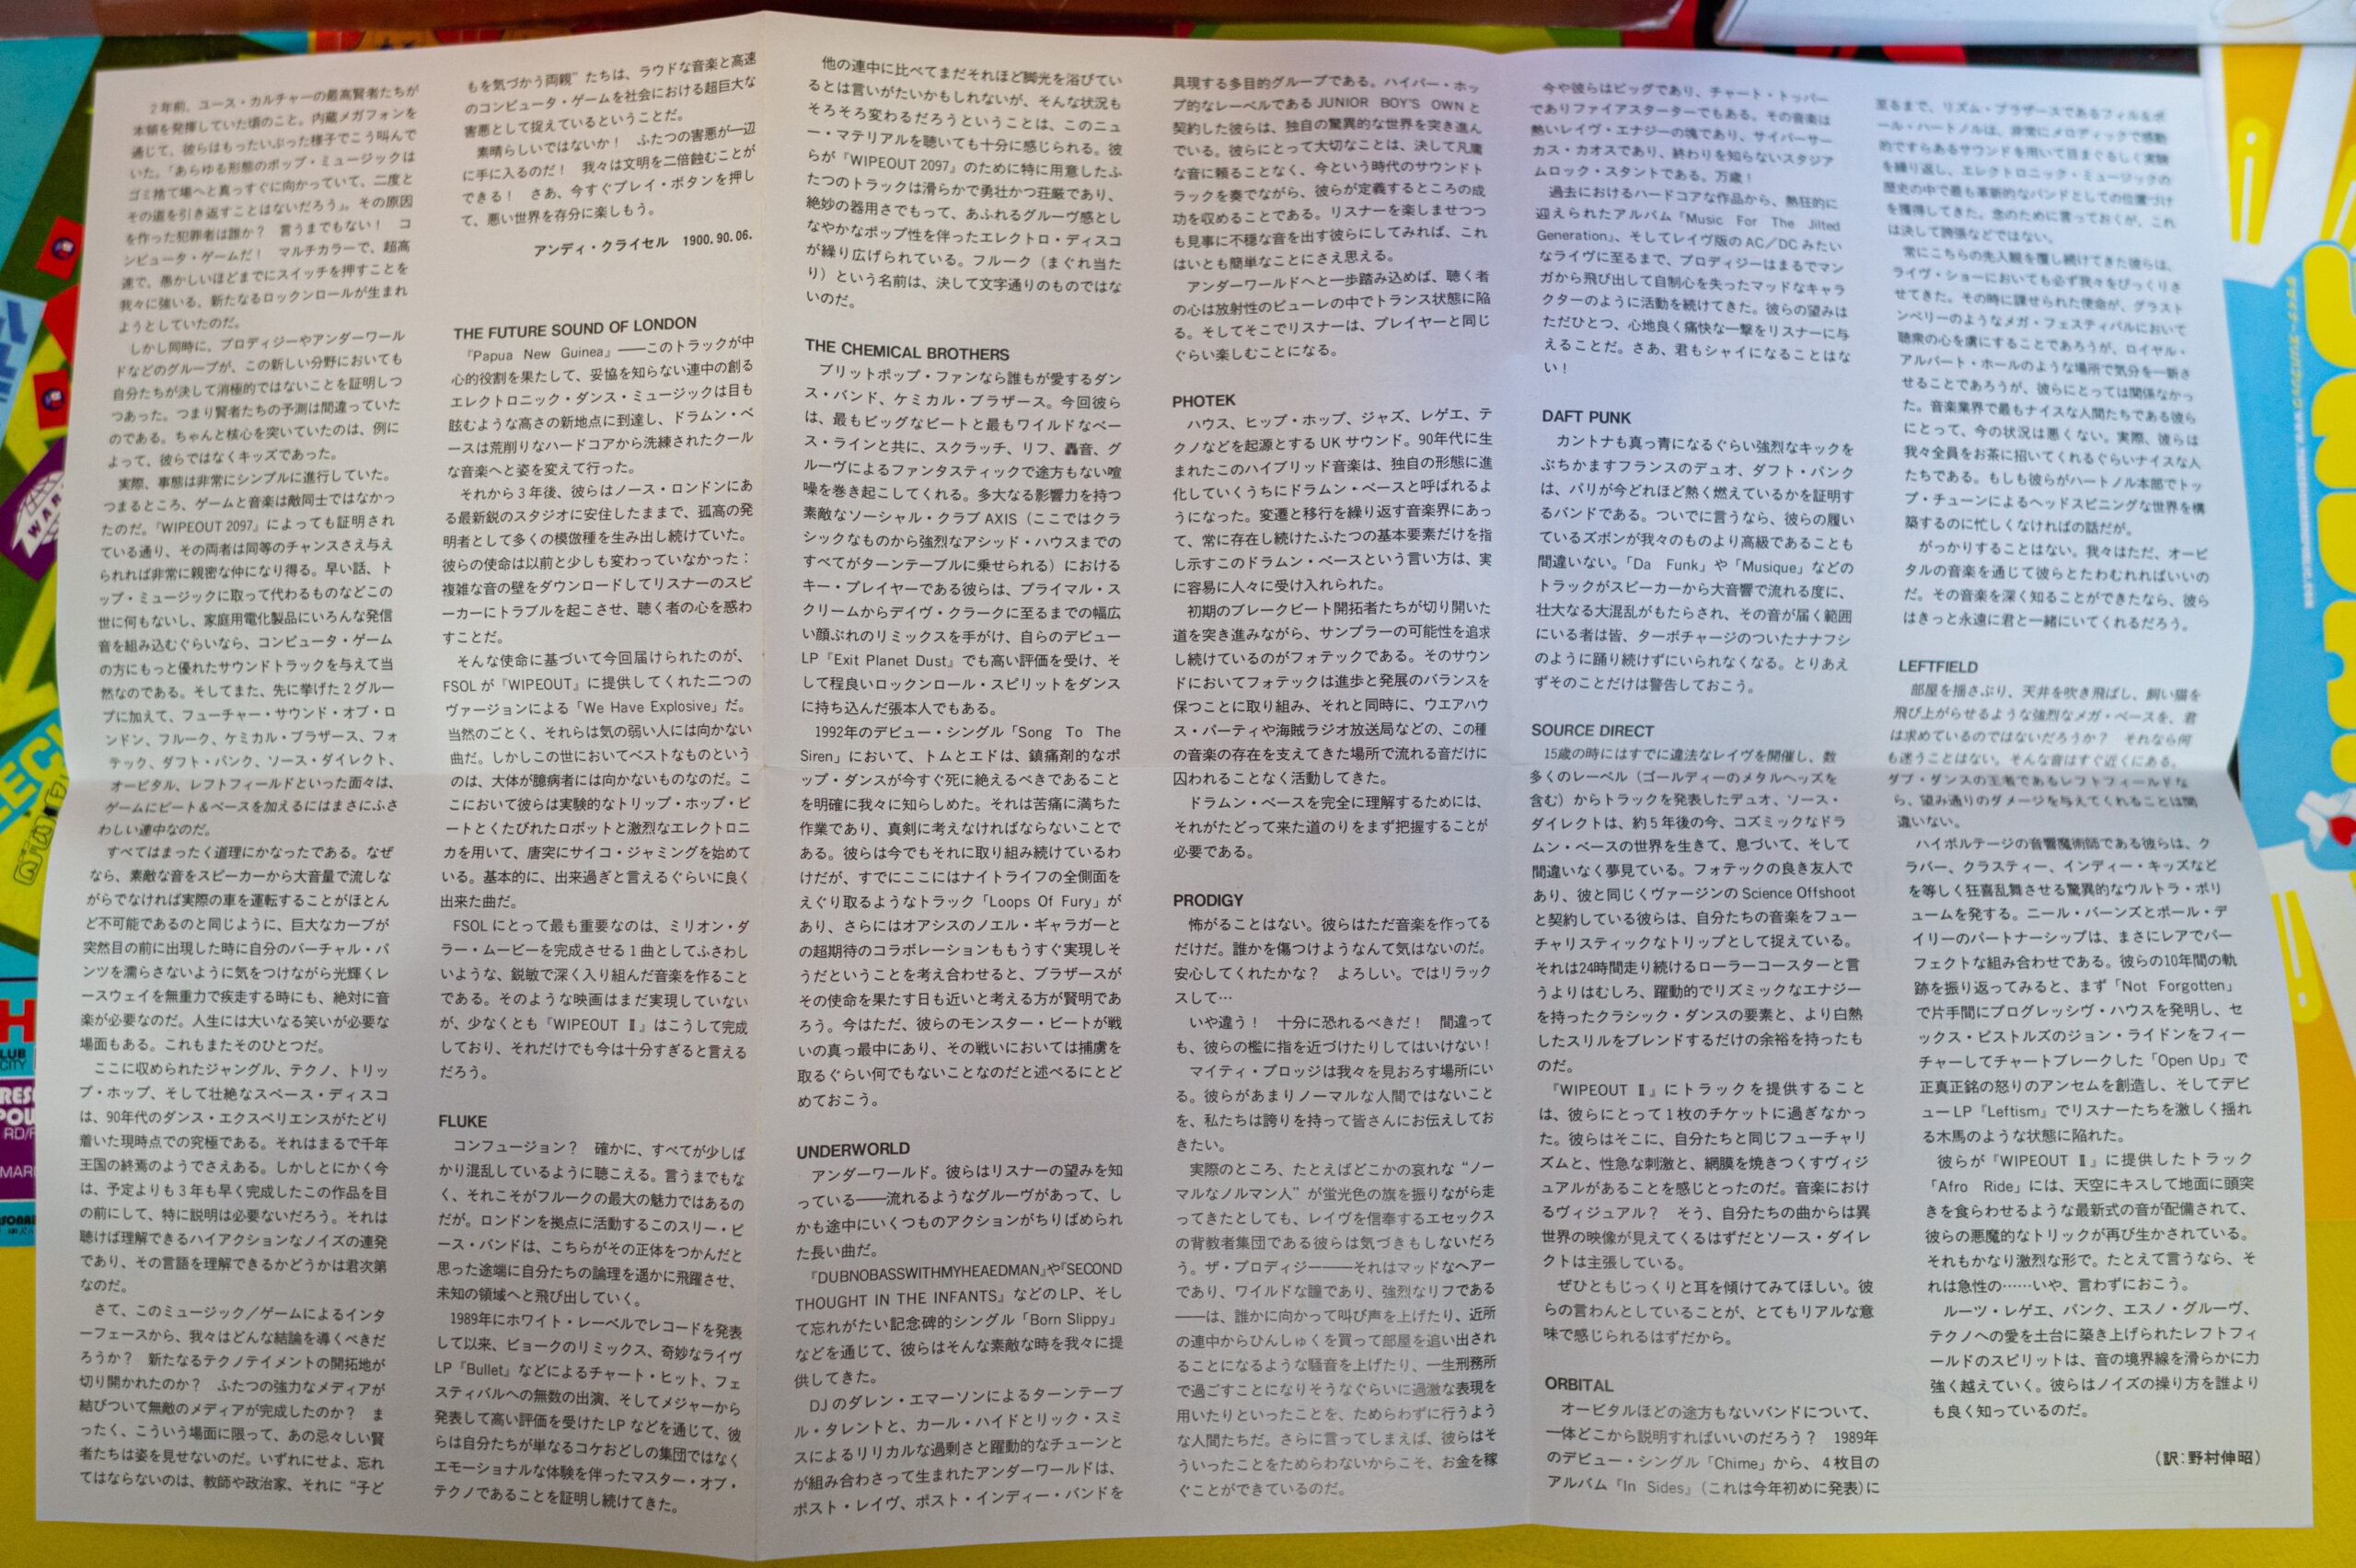 2年前、ユース・カルチャーの最高賢者たちが
本領を発揮していた頃のこと。内蔵メガフォンを
通じて、彼らはもったいぶった様子でこう叫んで
いた。「あらゆる形態のポップ・ミュージックは
ゴミ捨て場へと真っすぐに向かっていて、二度と
その道を引き返すことはないだろう」。その原因
を作った犯罪者は誰か?　言うまでもない!　コ
ンピュータ・ゲームだ!　マルチカラーで、超高
速で、愚かしいほどまでにスイッチを押すことを
我々に強いる、新たなるロックンロールが生まれ
ようとしていたのだ。
しかし同時に、プロディジーやアンダーワール
ドなどのグループが、この新しい分野においても
自分たちが決して消極的ではないことを証明しつ
つあった。つまり賢者たちの予測は間違っていた
のである。ちゃんと核心を突いていたのは、例に
よって、彼らではなくキッズであった。
実際、事態は非常にシンプルに進行していた。
つまるところ、ゲームと音楽は敵同士ではなかっ
たのだ。『WIPEOUT 2097』によっても証明され
ている通り、その両者は同等のチャンスさえ与え
られれば非常に親密な仲になり得る。早い話、ト
ップ・ミュージックに取って代わるものなどこの
世に何もないし、家庭用電化製品にいろんな発信
音を組み込むぐらいなら、コンピュータ・ゲーム
の方にもっと優れたサウンドトラックを与えて当
然なのである。そしてまた、先に挙げた2グルー
プに加えて、フューチャー・サウンド・オブ・ロ
ンドン、フルーク、ケミカル・ブラザース、フォ
テック、ダフト・パンク、ソース・ダイレクト、
オービタル、レフトフィールドといった面々は、
ゲームにビート＆ベースを加えるにはまさにふさ
わしい連中なのだ。
すべてはまったく道理にかなったである。なぜ
なら、素敵な音をスピーカーから大音量で流しな
がらでなければ実際の車を運転することがほとん
ど不可能であるのと同じように、巨大なカーブが
突然目の前に出現した時に自分のバーチャル・パ
ンツを濡らさないように気をつけながら光輝くレ
ースウェイを無重力で疾走する時にも、絶対に音
楽が必要なのだ。人生には大いなる笑いが必要な
場面もある。これもまたそのひとつだ。
ここに収められたジャングル、テクノ、トリッ
プ・ホップ、そして壮絶なスペース・ディスコ
は、90年代のダンス・エクスペリエンスがたどり
着いた現時点での究極である。それはまるで千年
王国の終焉のようでさえある。しかしとにかく今
は、予定よりも3年も早く完成したこの作品を目
の前にして、特に説明は必要ないだろう。それは
聴けば理解できるハイアクションなノイズの連発
であり、その言語を理解できるかどうかは君次第
なのだ。
さて、このミュージック／ゲームによるインタ
ーフェースから、我々はどんな結論を導くべきだ
ろうか?　新たなるテクノテイメントの開拓地が
切り開かれたのか?　ふたつの強力なメディアが
結びついて無敵のメディアが完成したのか?　ま
ったく、こういう場面に限って、あの忌々しい賢
者たちは姿を見せないのだ。いずれにせよ、忘れ
てはならないのは、教師や政治家、それに“子ど
もを気づかう両親”たちは、ラウドな音楽と高速
のコンピュータ・ゲームを社会における超巨大な
害悪として捉えているということだ。
素晴らしいではないか!　ふたつの害悪が一辺
に手に入るのだ!　我々は文明を二倍蝕むことが
できる!　さあ、今すぐプレイ・ボタンを押し
て、悪い世界を存分に楽しもう。
アンディ・クライセル　1900. 90. 06.
THE FUTURE SOUND OF LONDON
『Papua New Guinea』――このトラックが中
心的役割を果たして、妥協を知らない連中の創る
エレクトロニック・ダンス・ミュージックは目も
眩むような高さの新地点に到達し、ドラムン・ベ
ースは荒削りなハードコアから洗練されたクール
な音楽へと姿を変えて行った。
それから3年後、彼らはノース・ロンドンにあ
る最新鋭のスタジオに安住したままで、孤高の発
明者として多くの模倣種を生み出し続けていた。
彼らの使命は以前と少しも変わっていなかった：
複雑な音の壁をダウンロードしてリスナーのスピ
ーカーにトラブルを起こさせ、聴く者の心を惑わ
すことだ。
そんな使命に基づいて今回届けられたのが、
FSOL が『WIPEOUT』に提供してくれた二つの
ヴァージョンによる「We Have Explosive」だ。
当然のごとく、それらは気の弱い人には向かない
曲だ。しかしこの世においてベストなものという
のは、大体が臆病者には向かないものなのだ。こ
こにおいて彼らは実験的なトリップ・ホップ・ビ
ートとくたびれたロボットと激烈なエレクトロニ
カを用いて、唐突にサイコ・ジャミングを始めて
いる。基本的に、出来過ぎと言えるぐらいに良く
出来た曲だ。
FSOL にとって最も重要なのは、ミリオン・ダ
ラー・ムービーを完成させる1曲としてふさわし
いような、鋭敏で深く入り組んだ音楽を作ること
である。そのような映画はまだ実現していない
が、少なくとも『WIPEOUT Ⅱ』はこうして完成
しており、それだけでも今は十分すぎると言える
だろう。
FLUKE
コンフュージョン?　確かに、すべてが少しば
かり混乱しているように聴こえる。言うまでもな
く、それこそがフルークの最大の魅力ではあるの
だが。ロンドンを拠点に活動するこのスリー・ピ
ース・バンドは、こちらがその正体をつかんだと
思った途端に自分たちの論理を遥かに飛躍させ、
未知の領域へと飛び出していく。
1989年にホワイト・レーベルでレコードを発表
して以来、ビョークのリミックス、奇妙なライヴ
LP『Bullet』などによるチャート・ヒット、フェ
スティバルへの無数の出演、そしてメジャーから
発表して高い評価を受けた LP などを通じて、彼
らは自分たちが単なるコケおどしの集団ではなく
エモーショナルな体験を伴ったマスター・オブ・
テクノであることを証明し続けてきた。
他の連中に比べてまだそれほど脚光を浴びてい
るとは言いがたいかもしれないが、そんな状況も
そろそろ変わるだろうということは、このニュ
ー・マテリアルを聴いても十分に感じられる。彼
らが『WIPEOUT 2097』のために特に用意したふ
たつのトラックは滑らかで勇壮かつ荘厳であり、
絶妙の器用さでもって、あふれるグルーヴ感とし
なやかなポップ性を伴ったエレクトロ・ディスコ
が繰り広げられている。フルーク（まぐれ当た
り）という名前は、決して文字通りのものではな
いのだ。
THE CHEMICAL BROTHERS
ブリットポップ・ファンなら誰もが愛するダン
ス・バンド、ケミカル・ブラザース。今回彼ら
は、最もビッグなビートと最もワイルドなベー
ス・ラインと共に、スクラッチ、リフ、轟音、グ
ルーヴによるファンタスティックで途方もない喧
噪を巻き起こしてくれる。多大なる影響力を持つ
素敵なソーシャル・クラブ AXIS（ここではクラ
シックなものから強烈なアシッド・ハウスまでの
すべてがターンテーブルに乗せられる）における
キー・プレイヤーである彼らは、プライマル・ス
クリームからデイヴ・クラークに至るまでの幅広
い顔ぶれのリミックスを手がけ、自らのデビュー
LP『Exit Planet Dust』でも高い評価を受け、そ
して程良いロックンロール・スピリットをダンス
に持ち込んだ張本人でもある。
1992年のデビュー・シングル「Song To The
Siren」において、トムとエドは、鎮痛剤的なポ
ップ・ダンスが今すぐ死に絶えるべきであること
を明確に我々に知らしめた。それは苦痛に満ちた
作業であり、真剣に考えなければならないことで
ある。彼らは今でもそれに取り組み続けているわ
けだが、すでにここにはナイトライフの全側面を
えぐり取るようなトラック「Loops Of Fury」が
あり、さらにはオアシスのノエル・ギャラガーと
の超期待のコラボレーションももうすぐ実現しそ
うだということを考え合わせると、ブラザースが
その使命を果たす日も近いと考える方が賢明であ
ろう。今はただ、彼らのモンスター・ビートが戦
いの真っ最中にあり、その戦いにおいては捕虜を
取るぐらい何でもないことなのだと述べるにとど
めておこう。
UNDERWORLD
アンダーワールド。彼らはリスナーの望みを知
っている――流れるようなグルーヴがあって、し
かも途中にいくつものアクションがちりばめられ
た長い曲だ。
『DUBNOBASSWITHMYHEAEDMAN』や『SECOND
THOUGHT IN THE INFANTS』などの LP、そし
て忘れがたい記念碑的シングル「Born Slippy」
などを通じて、彼らはそんな素敵な時を我々に提
供してきた。
DJのダレン・エマーソンによるターンテーブ
ル・タレントと、カール・ハイドとリック・スミ
スによるリリカルな過剰さと躍動的なチューンと
が組み合わさって生まれたアンダーワールドは、
ポスト・レイヴ、ポスト・インディー・バンドを
具現する多目的グループである。ハイパー・ホッ
プ的なレーベルである JUNIOR BOY'S OWN と
契約した彼らは、独自の驚異的な世界を突き進ん
でいる。彼らにとって大切なことは、決して凡庸
な音に頼ることなく、今という時代のサウンドト
ラックを奏でながら、彼らが定義するところの成
功を収めることである。リスナーを楽しませつつ
も見事に不穏な音を出す彼らにしてみれば、これ
はいとも簡単なことにさえ思える。
アンダーワールドへと一歩踏み込めば、聴く者
の心は放射性のピューレの中でトランス状態に陥
る。そしてそこでリスナーは、プレイヤーと同じ
ぐらい楽しむことになる。
PHOTEK
ハウス、ヒップ・ホップ、ジャズ、レゲエ、テ
クノなどを起源とする UK サウンド。90年代に生
まれたこのハイブリッド音楽は、独自の形態に進
化していくうちにドラムン・ベースと呼ばれるよ
うになった。変遷と移行を繰り返す音楽界にあっ
て、常に存在し続けたふたつの基本要素だけを指
し示すこのドラムン・ベースという言い方は、実
に容易に人々に受け入れられた。
初期のブレークビート開拓者たちが切り開いた
道を突き進みながら、サンプラーの可能性を追求
し続けているのがフォテックである。そのサウン
ドにおいてフォテックは進歩と発展のバランスを
保つことに取り組み、それと同時に、ウエアハウ
ス・パーティや海賊ラジオ放送局などの、この種
の音楽の存在を支えてきた場所で流れる音だけに
囚われることなく活動してきた。
ドラムン・ベースを完全に理解するためには、
それがたどって来た道のりをまず把握することが
必要である。
PRODIGY
怖がることはない。彼らはただ音楽を作ってる
だけだ。誰かを傷つけようなんて気はないのだ。
安心してくれたかな?　よろしい。ではリラック
スして…
いや違う!　十分に恐れるべきだ!　間違って
も、彼らの檻に指を近づけたりしてはいけない!
マイティ・プロッジは我々を見おろす場所にい
る。彼らがあまりノーマルな人間ではないこと
を、私たちは誇りを持って皆さんにお伝えしてお
きたい。
実際のところ、たとえばどこかの哀れな“ノー
マルなノルマン人”が蛍光色の旗を振りながら走
ってきたとしても、レイヴを信奉するエセックス
の背教者集団である彼らは気づきもしないだろ
う。ザ・プロディジー――それはマッドなヘアー
であり、ワイルドな瞳であり、強烈なリフである
――は、誰かに向かって叫び声を上げたり、近所
の連中からひんしゅくを買って部屋を追い出され
ることになるような騒音を上げたり、一生刑務所
で過ごすことになりそうなぐらいに過激な表現を
用いたりといったことを、ためらわずに行うよう
な人間たちだ。さらに言ってしまえば、彼らはそ
ういったことをためらわないからこそ、お金を稼
ぐことができているのだ。
今や彼らはビッグであり、チャート・トッパー
でありファイアスターターでもある。その音楽は
熱いレイヴ・エナジーの塊であり、サイバーサー
カス・カオスであり、終わりを知らないスタジア
ムロック・スタントである。万歳!
過去におけるハードコアな作品から、熱狂的に
迎えられたアルバム『Music For The Jilted
Generation』、そしてレイヴ版の AC／DC みたい
なライヴに至るまで、プロディジーはまるでマン
ガから飛び出して自制心を失ったマッドなキャラ
クターのように活動を続けてきた。彼らの望みは
ただひとつ、心地良く痛快な一撃をリスナーに与
えることだ。さあ、君もシャイになることはな
い!
DAFT PUNK
カントナも真っ青になるぐらい強烈なキックを
ぶちかますフランスのデュオ、ダフト・パンク
は、パリが今どれほど熱く燃えているかを証明す
るバンドである。ついでに言うなら、彼らの履い
ているズボンが我々のものより高級であることも
間違いない。「Da Funk」や「Musique」などの
トラックがスピーカーから大音響で流れる度に、
壮大なる大混乱がもたらされ、その音が届く範囲
にいる者は皆、ターボチャージのついたナナフシ
のように踊り続けずにいられなくなる。とりあえ
ずそのことだけは警告しておこう。
SOURCE DIRECT
15歳の時にはすでに違法なレイヴを開催し、数
多くのレーベル（ゴールディーのメタルヘッズを
含む）からトラックを発表したデュオ、ソース・
ダイレクトは、約5年後の今、コズミックなドラ
ムン・ベースの世界を生きて、息づいて、そして
間違いなく夢見ている。フォテックの良き友人で
あり、彼と同じくヴァージンの Science Offshoot
と契約している彼らは、自分たちの音楽をフュー
チャリスティックなトリップとして捉えている。
それは24時間走り続けるローラーコースターと言
うよりはむしろ、躍動的でリズミックなエナジー
を持ったクラシック・ダンスの要素と、より白熱
したスリルをブレンドするだけの余裕を持ったも
のだ。
『WIPEOUT Ⅱ』にトラックを提供すること
は、彼らにとって1枚のチケットに過ぎなかっ
た。彼らはそこに、自分たちと同じフューチャリ
ズムと、性急な刺激と、網膜を焼きつくすヴィジ
ュアルがあることを感じとったのだ。音楽におけ
るヴィジュアル?　そう、自分たちの曲からは異
世界の映像が見えてくるはずだとソース・ダイレ
クトは主張している。
ぜひともじっくりと耳を傾けてみてほしい。彼
らの言わんとしていることが、とてもリアルな意
味で感じられるはずだから。
ORBITAL
オービタルほどの途方もないバンドについて、
一体どこから説明すればいいのだろう?　1989年
のデビュー・シングル「Chime」から、4枚目の
アルバム『In Sides』（これは今年初めに発表）に
至るまで、リズム・ブラザースであるフィル＆ポ
ール・ハートノルは、非常にメロディックで感動
的ですらあるサウンドを用いて目まぐるしく実験
を繰り返し、エレクトロニック・ミュージックの
歴史の中で最も革新的なバンドとしての位置づけ
を獲得してきた。念のために言っておくが、これ
は決して誇張などではない。
常にこちらの先入観を覆し続けてきた彼らは、
ライヴ・ショーにおいても必ず我々をびっくりさ
せてきた。その時に課せられた使命が、グラスト
ンベリーのようなメガ・フェスティバルにおいて
聴衆の心を虜にすることであろうが、ロイヤル・
アルバート・ホールのような場所で気分を一新さ
せることであろうが、彼らにとっては関係なかっ
た。音楽業界で最もナイスな人間たちである彼ら
にとって、今の状況は悪くない。実際、彼らは
我々全員をお茶に招いてくれるぐらいナイスな人
たちである。もしも彼らがハートノル本部でトッ
プ・チューンによるヘッドスピニングな世界を構
築するのに忙しくなければの話だが。
がっかりすることはない。我々はただ、オービ
タルの音楽を通じて彼らとたわむれればいいの
だ。その音楽を深く知ることができたなら、彼ら
はきっと永遠に君と一緒にいてくれるだろう。
LEFTFIELD
部屋を揺さぶり、天井を吹き飛ばし、飼い猫を
飛び上がらせるような強烈なメガ・ベースを、君
は求めているのではないだろうか?　それなら何
も迷うことはない。そんな音はすぐ近くにある。
ダブ・ダンスの王者であるレフトフィールドな
ら、望み通りのダメージを与えてくれることは間
違いない。
ハイボルテージの音響魔術師である彼らは、ク
ラバー、クラスティー、インディー・キッズなど
を等しく狂喜乱舞させる驚異的なウルトラ・ボリ
ュームを発する。ニール・バーンズとポール・デ
イリーのパートナーシップは、まさにレアでパー
フェクトな組み合わせである。彼らの10年間の軌
跡を振り返ってみると、まず「Not Forgotten」
で片手間にプログレッシヴ・ハウスを発明し、セ
ックス・ピストルズのジョン・ライドンをフィー
チャーしてチャートブレークした「Open Up」で
正真正銘の怒りのアンセムを創造し、そしてデビ
ュー LP『Leftism』でリスナーたちを激しく揺れ
る木馬のような状態に陥れた。
彼らが『WIPEOUT Ⅱ』に提供したトラック
「Afro Ride」には、天空にキスして地面に頭突
きを食らわせるような最新式の音が配備されて、
彼らの悪魔的なトリックが再び生かされている。
それもかなり激烈な形で。たとえて言うなら、そ
れは急性の……いや、言わずにおこう。
ルーツ・レゲエ、パンク、エスノ・グルーヴ、
テクノへの愛を土台に築き上げられたレフトフィ
ールドのスピリットは、音の境界線を滑らかに力
強く越えていく。彼らはノイズの操り方を誰より
も良く知っているのだ。
（訳：野村伸昭）